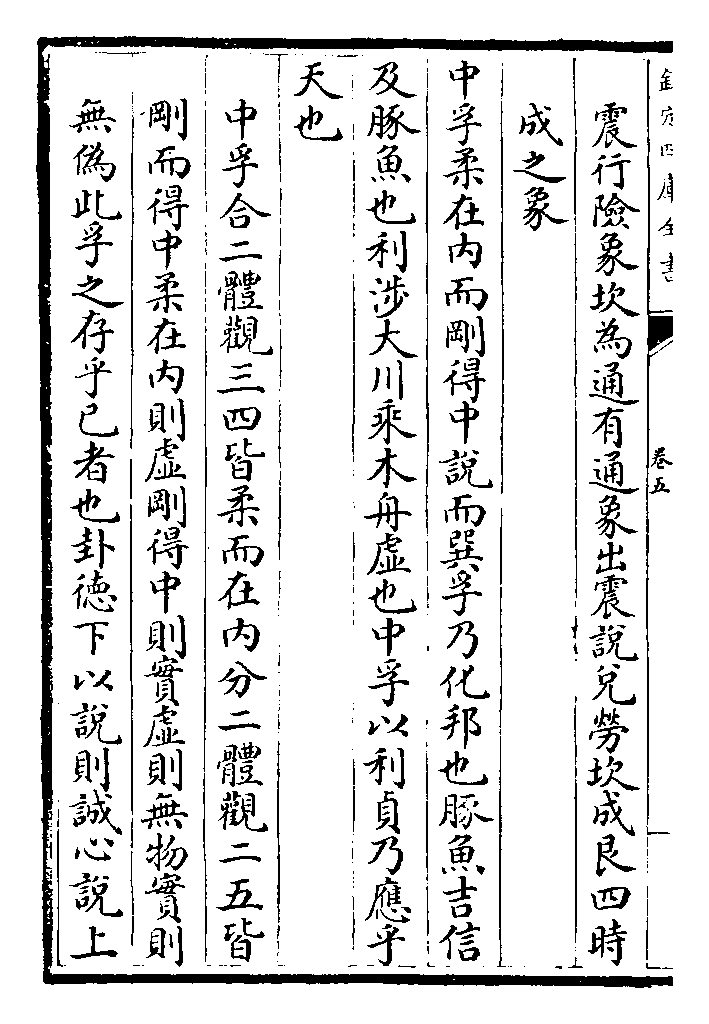 欽定四庫全書
卷五
震行險象坎為通有通象出震說兌勞坎成艮四時
成之象
中孚柔在内而剛得中說而巽孚乃化邦也豚魚吉信
及豚魚也利涉大川乘木舟虛也中孚以利貞乃應乎
天也
中孚合二體觀三四皆柔而在内分二體觀二五皆
剛而得中柔在内則虛剛得中則實虛則無物實則
無偽此孚之存乎已者也卦徳下以說則誠心說上